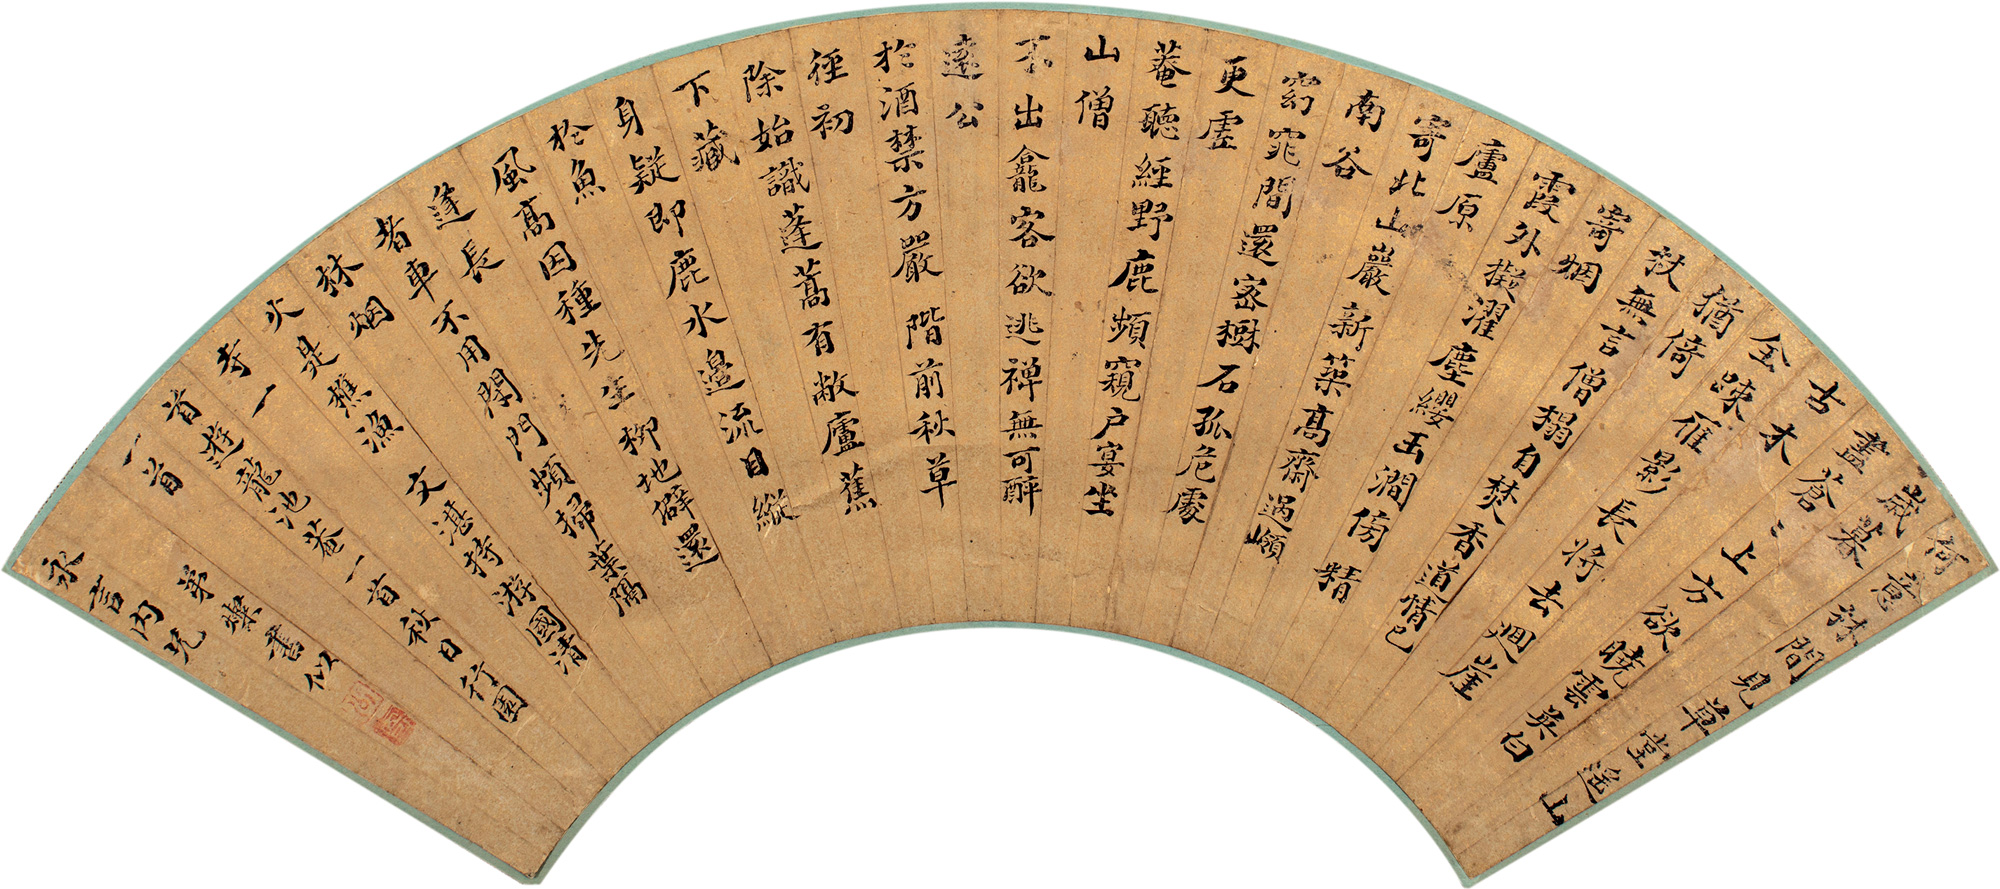 何意林間見草堂遥山
歲暮
盡蒼〻上方欲曉雲英白
古木
全疎雁影長將去迴崖
猶倚
秋無言僧榻自焚香道情已
寄烟
霞外擬濯塵纓玉澗傍 精
廬原
寄北山巖新築高齋過嶺
南谷
窈窕間還密樹石孤危處
更虛
菴聽經野鹿頻窺户宴坐
山僧
不出龕客欲逃禪無可醉
遠公
於酒禁方嚴階前秋草
徑初
除始識蓬蒿有敝廬蕉
下藏
身疑即鹿水邊流目縱
於魚
風高因種先生柳地僻還
逢長
者車不用閉門頻掃葉隔
林烟
火是樵漁 文湛持游國清
寺一
首游龍池菴一首秋日行園
一首
弟燦書似
永言內兄